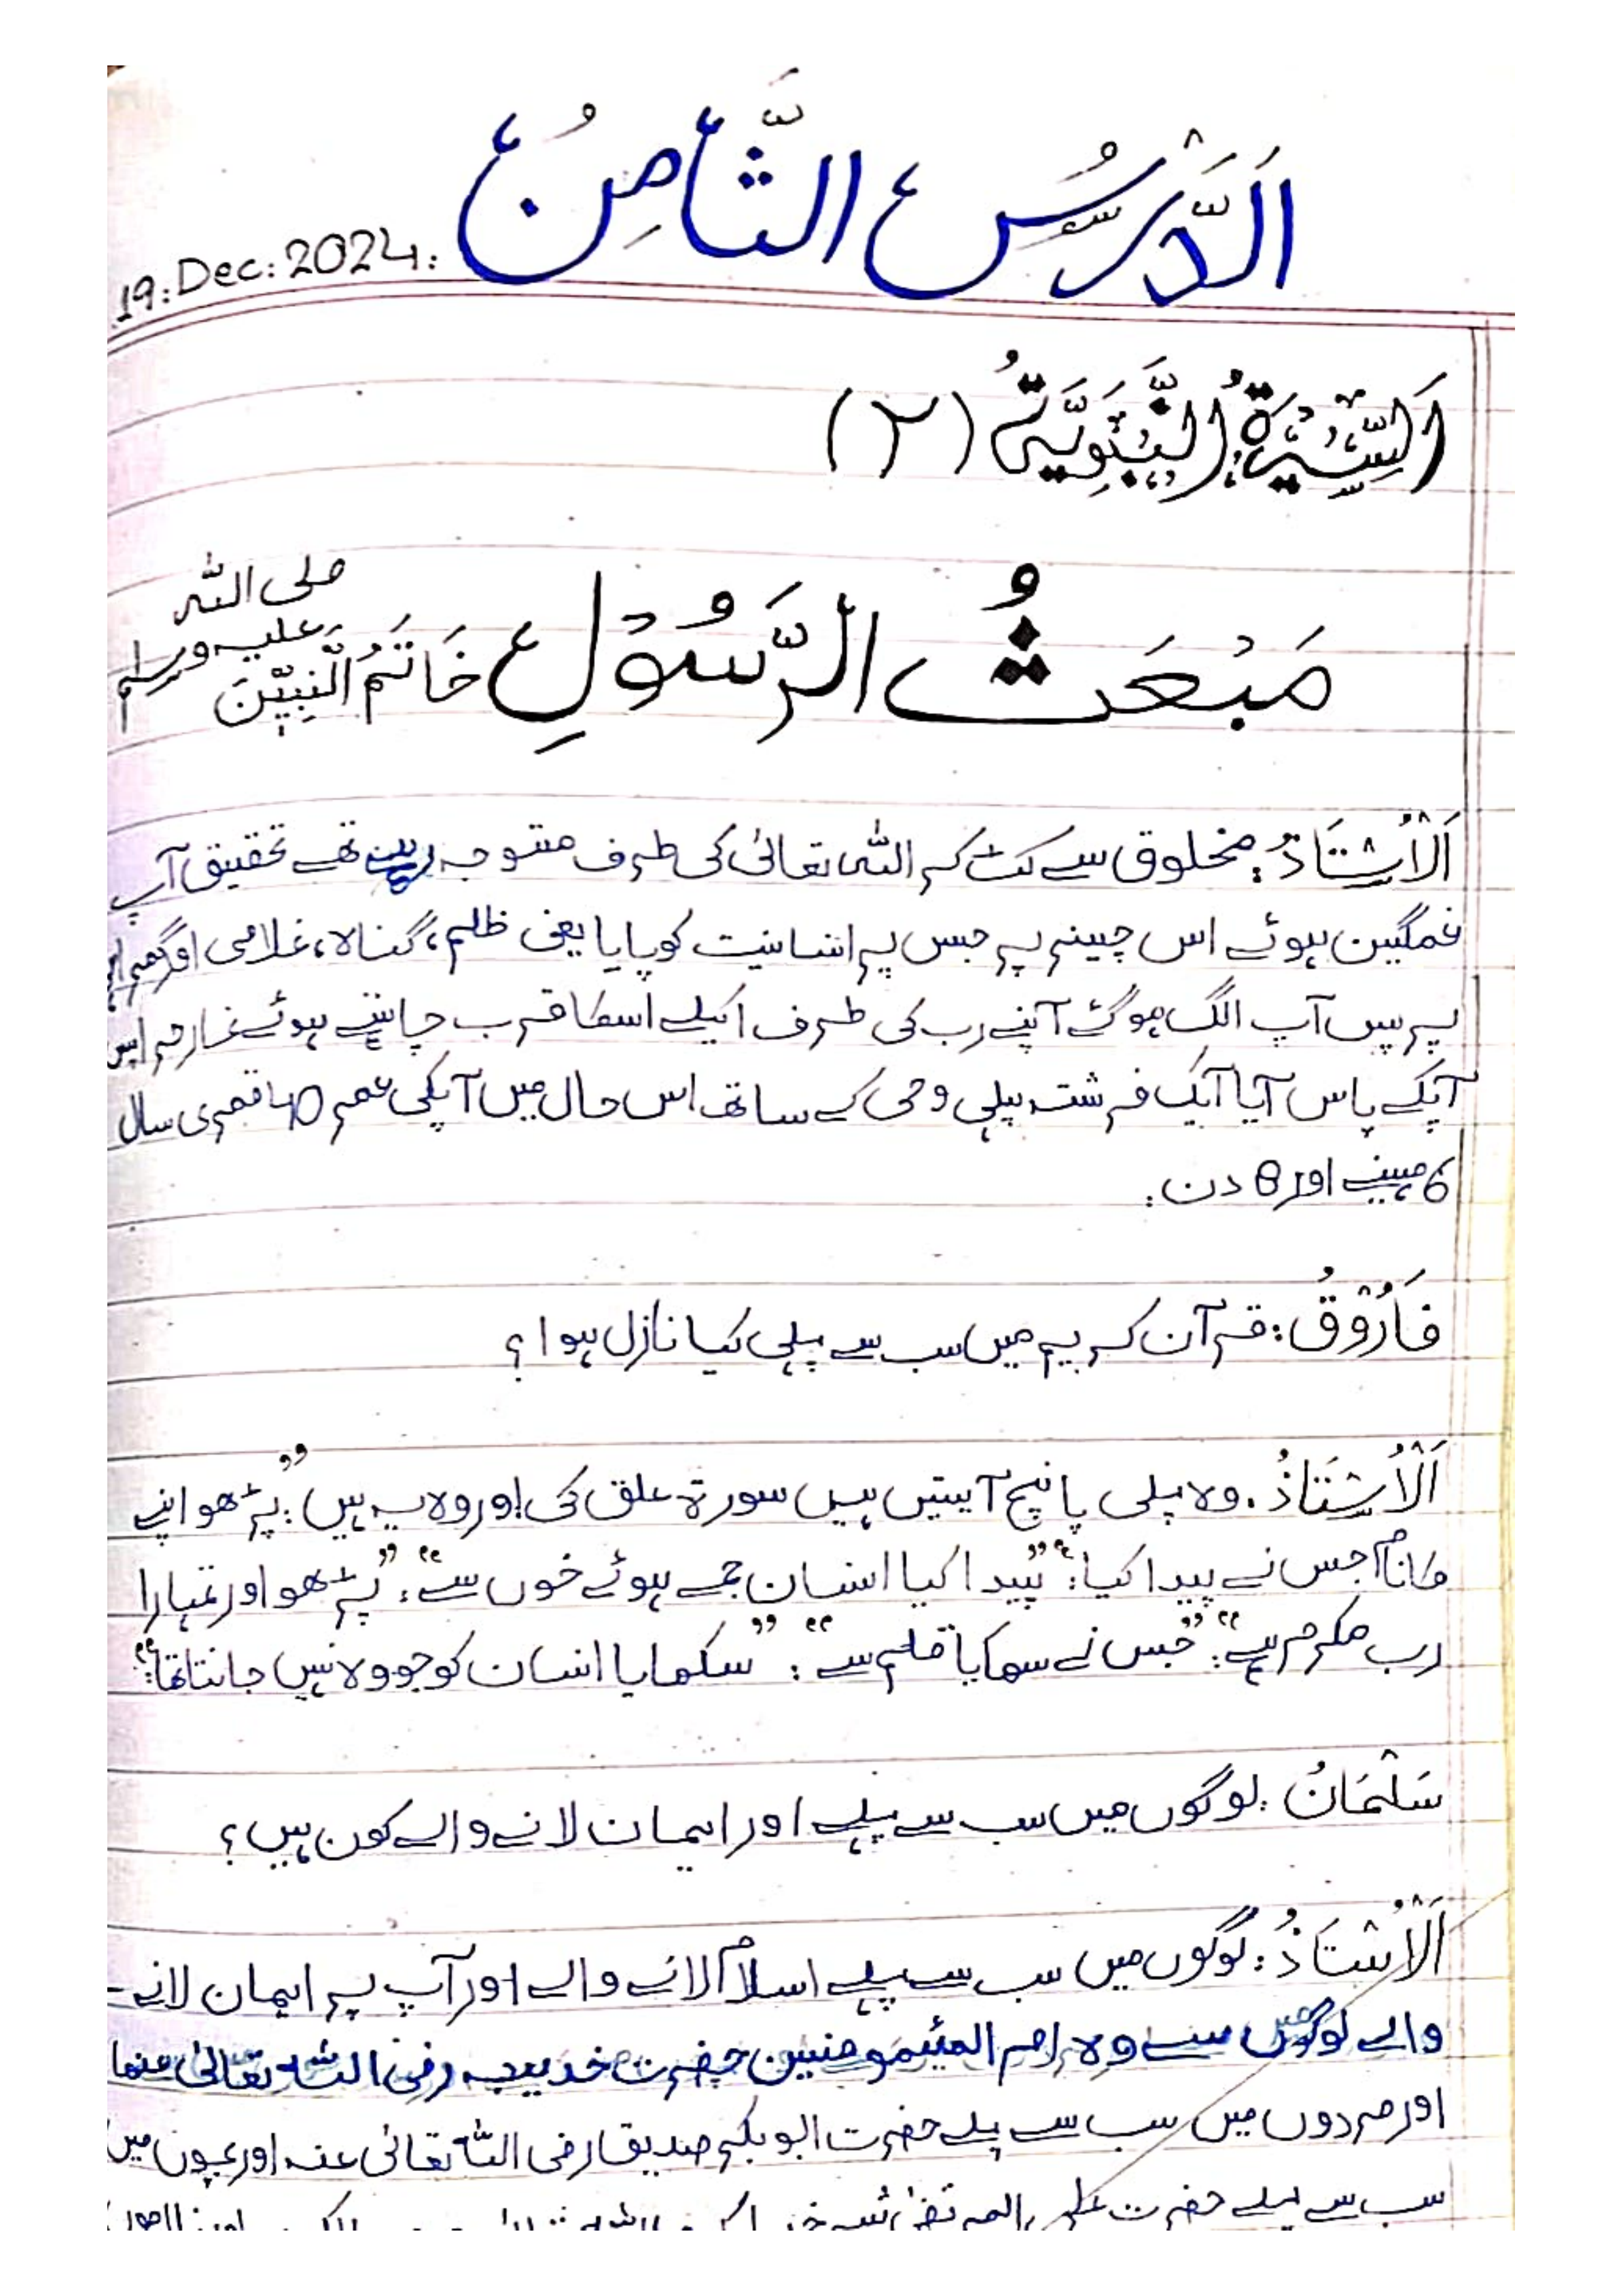 اَلدَّرْسُ الثَّامِنُ
19:Dec:2024:
اَلسِّيْرَةُ النَّبَوِيَّةُ (٢)
مَبْعَثُ الرَّسُوْلِ خَاتَمُ النَّبِيّٖنَ صلی اللہ علیہ وسلم
اَلْاُسْتَاذُ: مخلوق سے کٹ کر اللہ تعالیٰ کی طرف متوجہ رہتے تھے تحقیق آپ
غمگین ہوئے اس چیز پر جس پر انسانیت کو پایا یعنی ظلم، گناہ، غلامی اور
پر پس آپ الگ ہو گئے آپنے رب کی طرف اکیلے اسکا قرب چاہتے ہوئے غار حرا پس
آپکے پاس آیا آیک فرشتہ پہلی وحی کے ساتھ اس حال میں آپکی عمر 40 قمری سال
6 مہینے اور 8 دن:
فَارُوْقُ: قرآن کریم میں سب سے پہلی کیا نازل ہوا؟
اَلْاُسْتَاذُ: وہ پہلی پانچ آیتیں ہیں سورۃ علق کی اور وہ یہ ہیں: ”پڑھو اپنے
کا نام جس نے پیدا کیا“: ”پیدا کیا انسان جمے ہوئے خوں سے“: ”پڑھو اور تمہارا
رب مکرم ہے“: ”جس نے سھکایا قلم سے“: ”سکھایا انسان کو جو وہ نہیں جانتا تھا“:
سَلْمَانُ: لوگوں میں سب سے پہلے اور ایمان لانے والے کون ہیں؟
اَلْاُسْتَاذُ: لوگوں میں سب سے پہلے اسلام لانے والے اور آپ پر ایمان لانے-
والے لوگوں میں سے وہ ام المئمومنین حضرت خدیجہ رضی اللہ تعالیٰ عنھا
اور مردوں میں سب سے پہلے حضرت ابو بکر صدیق رضی اللہ تعالیٰ عنہ اور بچوں میں
سب سے پہلے حضرت علی المرتضٰی